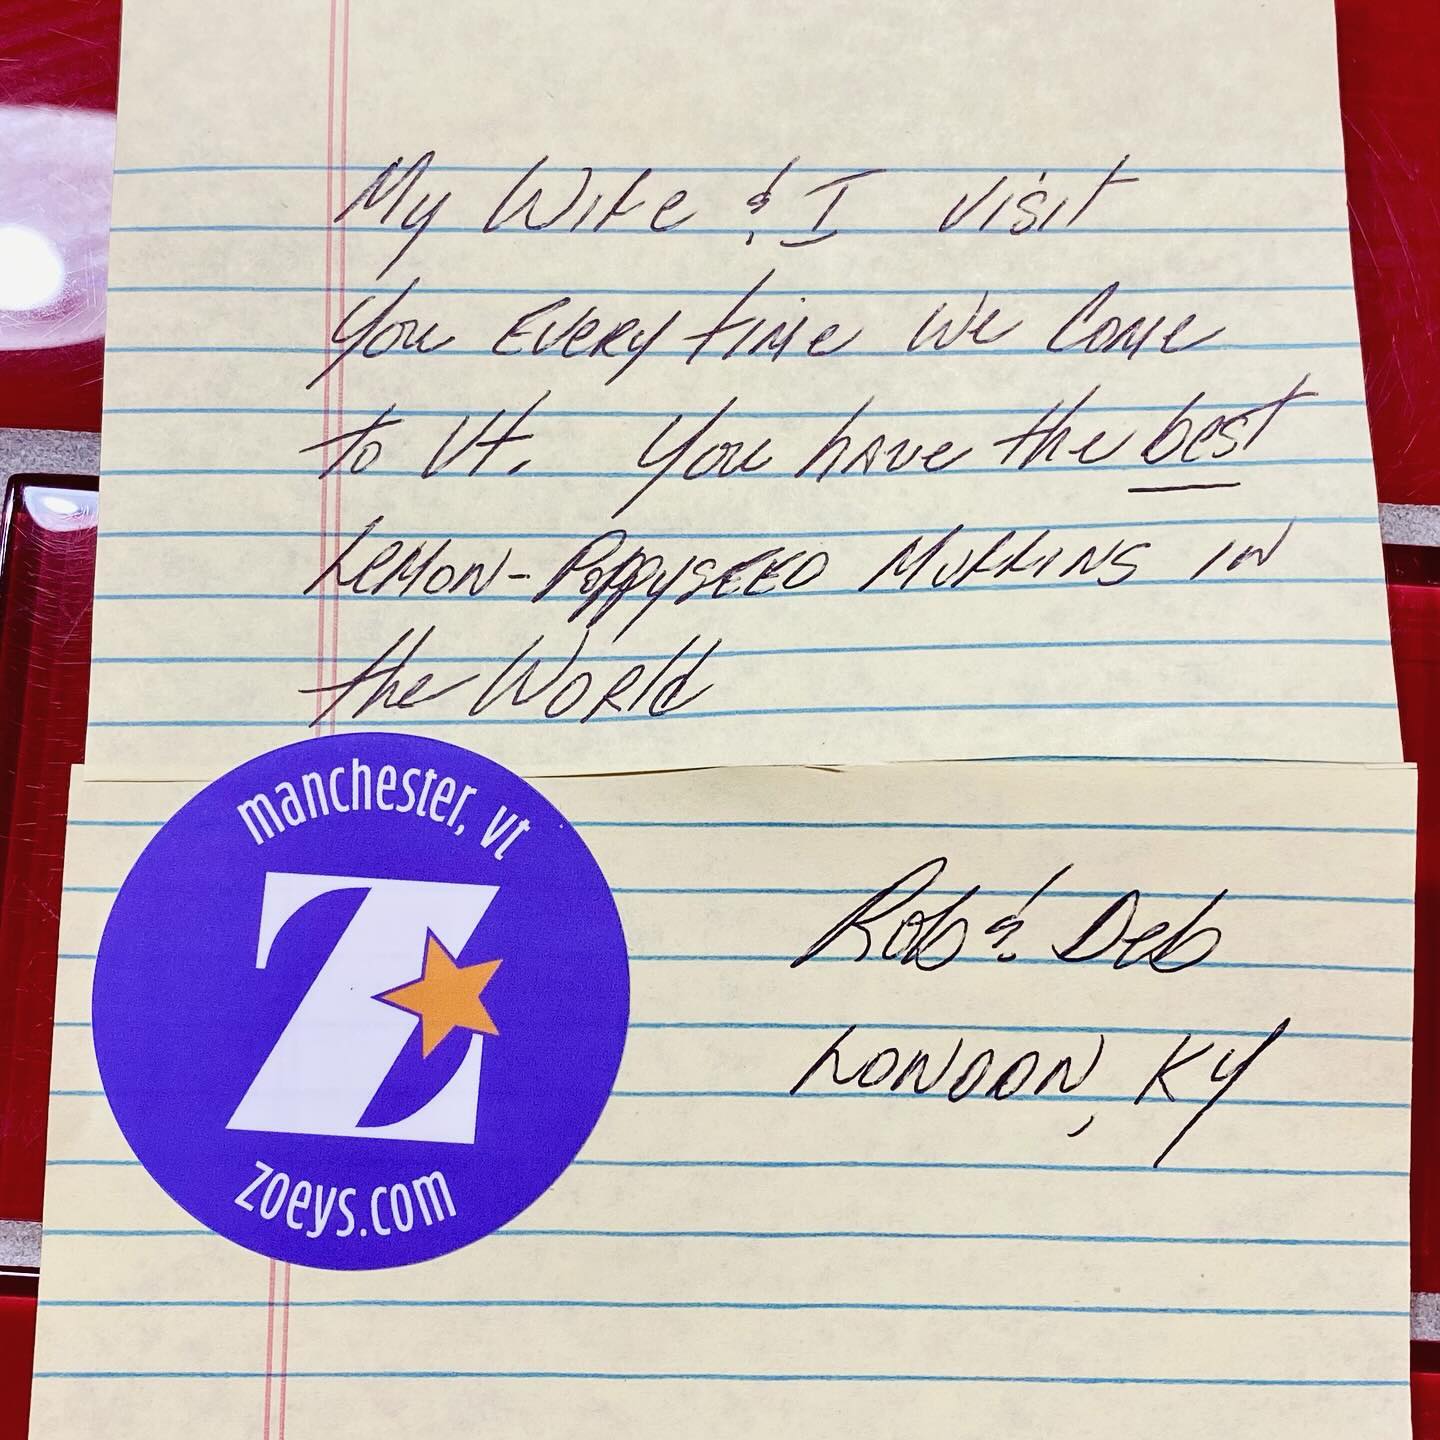 My Wife & I visit
You Every time We Come
to Vt. You have the best
Lemon-Poppyseed Muffins in
the World
manchester, vt
Z
zoeys.com
Rob & Deb
London, KY